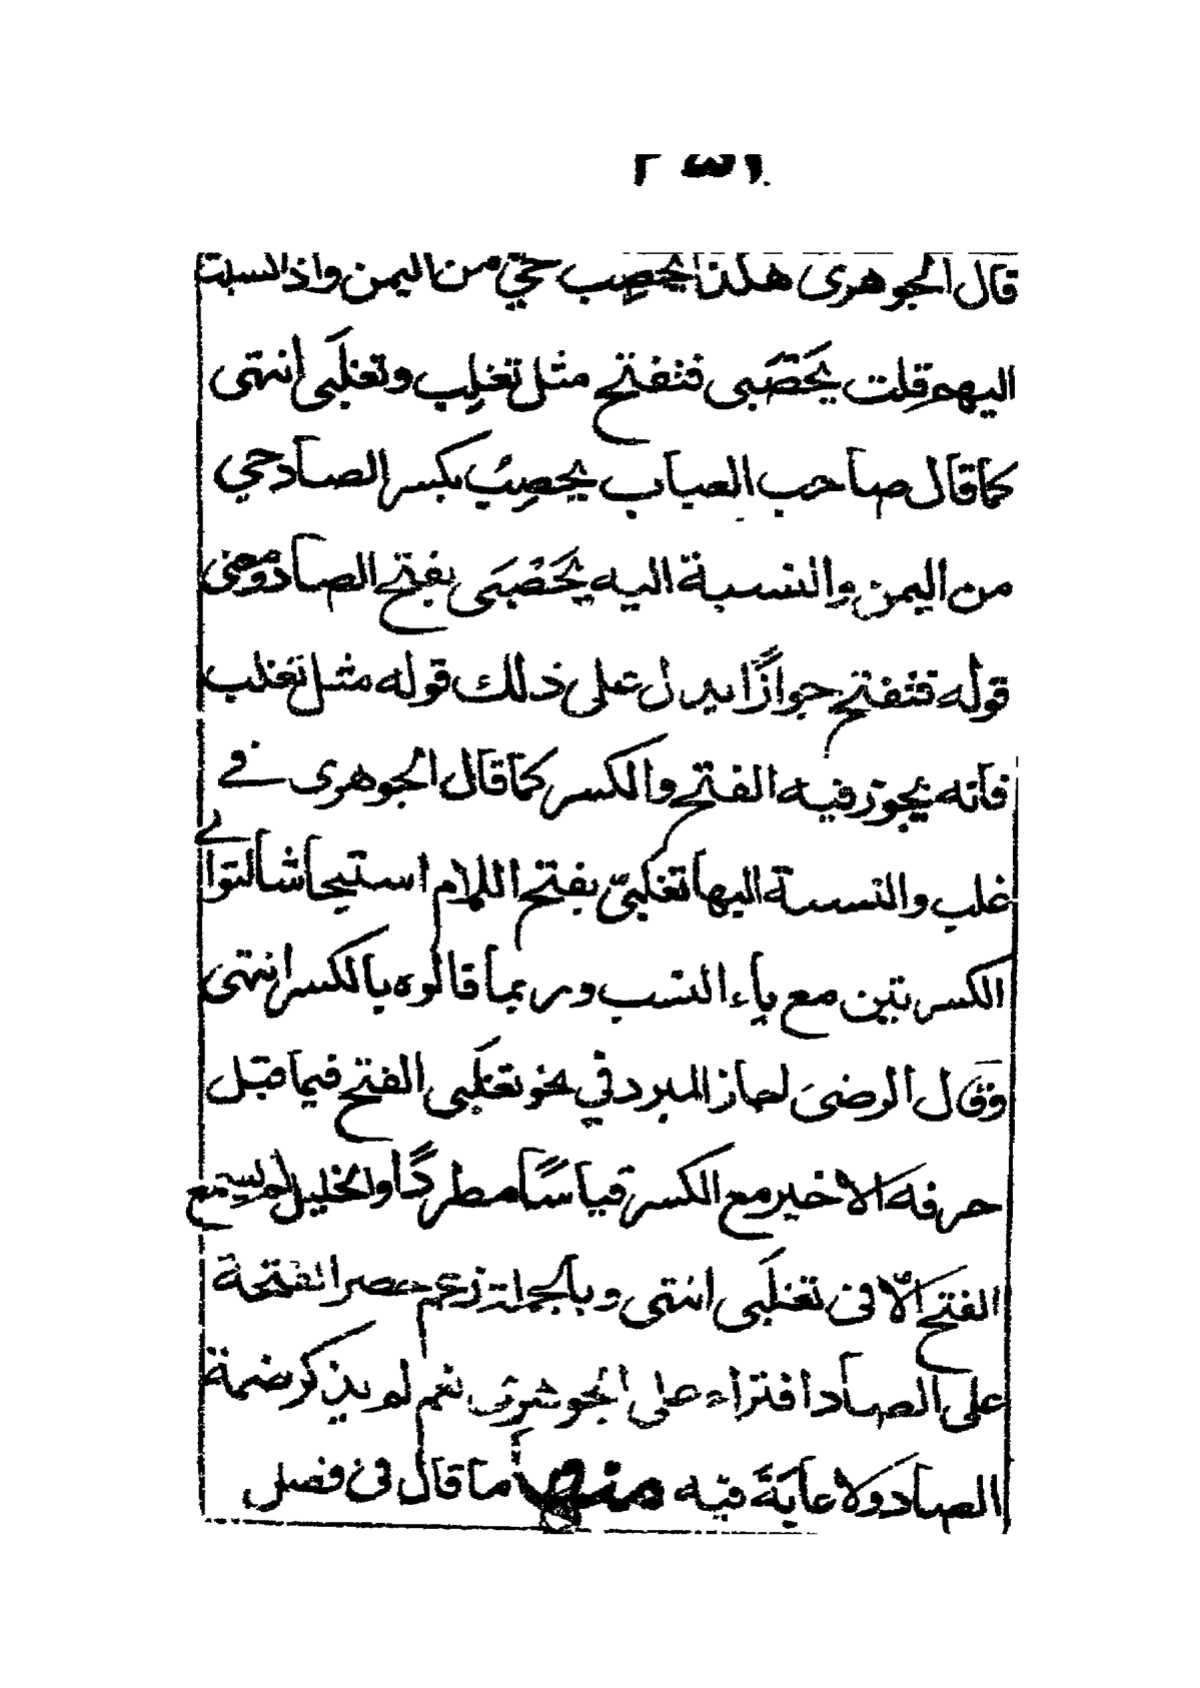 قال الجوهرى هكذا يحصِب حيّ من اليمن واذا نسبت
اليهم قلت يَحْصَبى فتفتح مثل تغلِب وتغلَبى انتهى
كما قال صاحب العباب يحصِبُ بكسر الصاد حي
من اليمن والنسبة اليه يَحْصَبَى بفتح الصاد ومعنى
قوله فتفتح جوازًا يدل على ذلك قوله مثل تغلب
فانه يجوز فيه الفتح والكسر كما قال الجوهرى في
غلب والنسبة اليها تغلَبىّ بفتح اللام استيحاشا لتوالى
الكسرتين مع ياء النسب وربما قالوه بالكسر انتهى
وقال الرضى اجاز المبرد في نحو تغلَبى الفتح فيما قبل
حرفه الاخير مع الكسر قياسًا مطردًا والخليل لم يسمع
الفتح الّا فى تغلَبى انتهى وبالجملة زعم حصر الفتحة
على الصاد افتراء على الجوهرى نعم لم يذكر ضمة
الصاد ولا غايَةَ فيه منها ما قال فى فصل